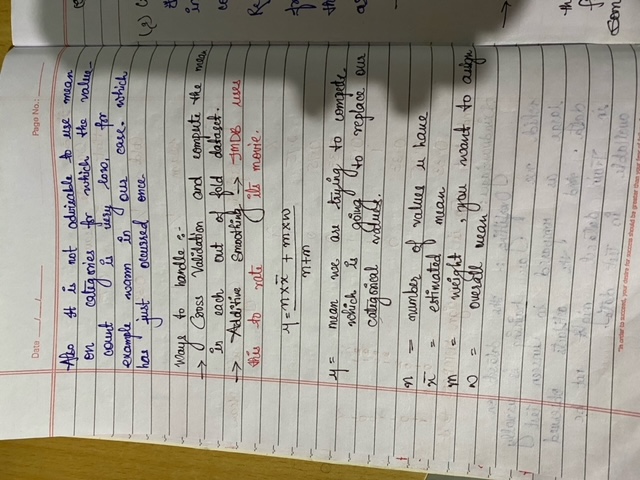 Date __/__/__ Page No.: ____
Also it is not advisable to use mean
on categories for which the value-
count is very low, for
example warm in our case. which
has just occurred once.
Ways to handle :-
→ Cross Validation and compute the mean
in each out of fold dataset.
→ Additive Smoothing → IMDB uses
this to rate its movie.
y = n×x̄ + m×w
n+m
y = mean we are trying to compute
which is going to replace our
categorical values.
n = number of values u have
x̄ = estimated mean
m = weight, you want to assign
w = overall mean
"In order to succeed, your desire for success should be greater than your